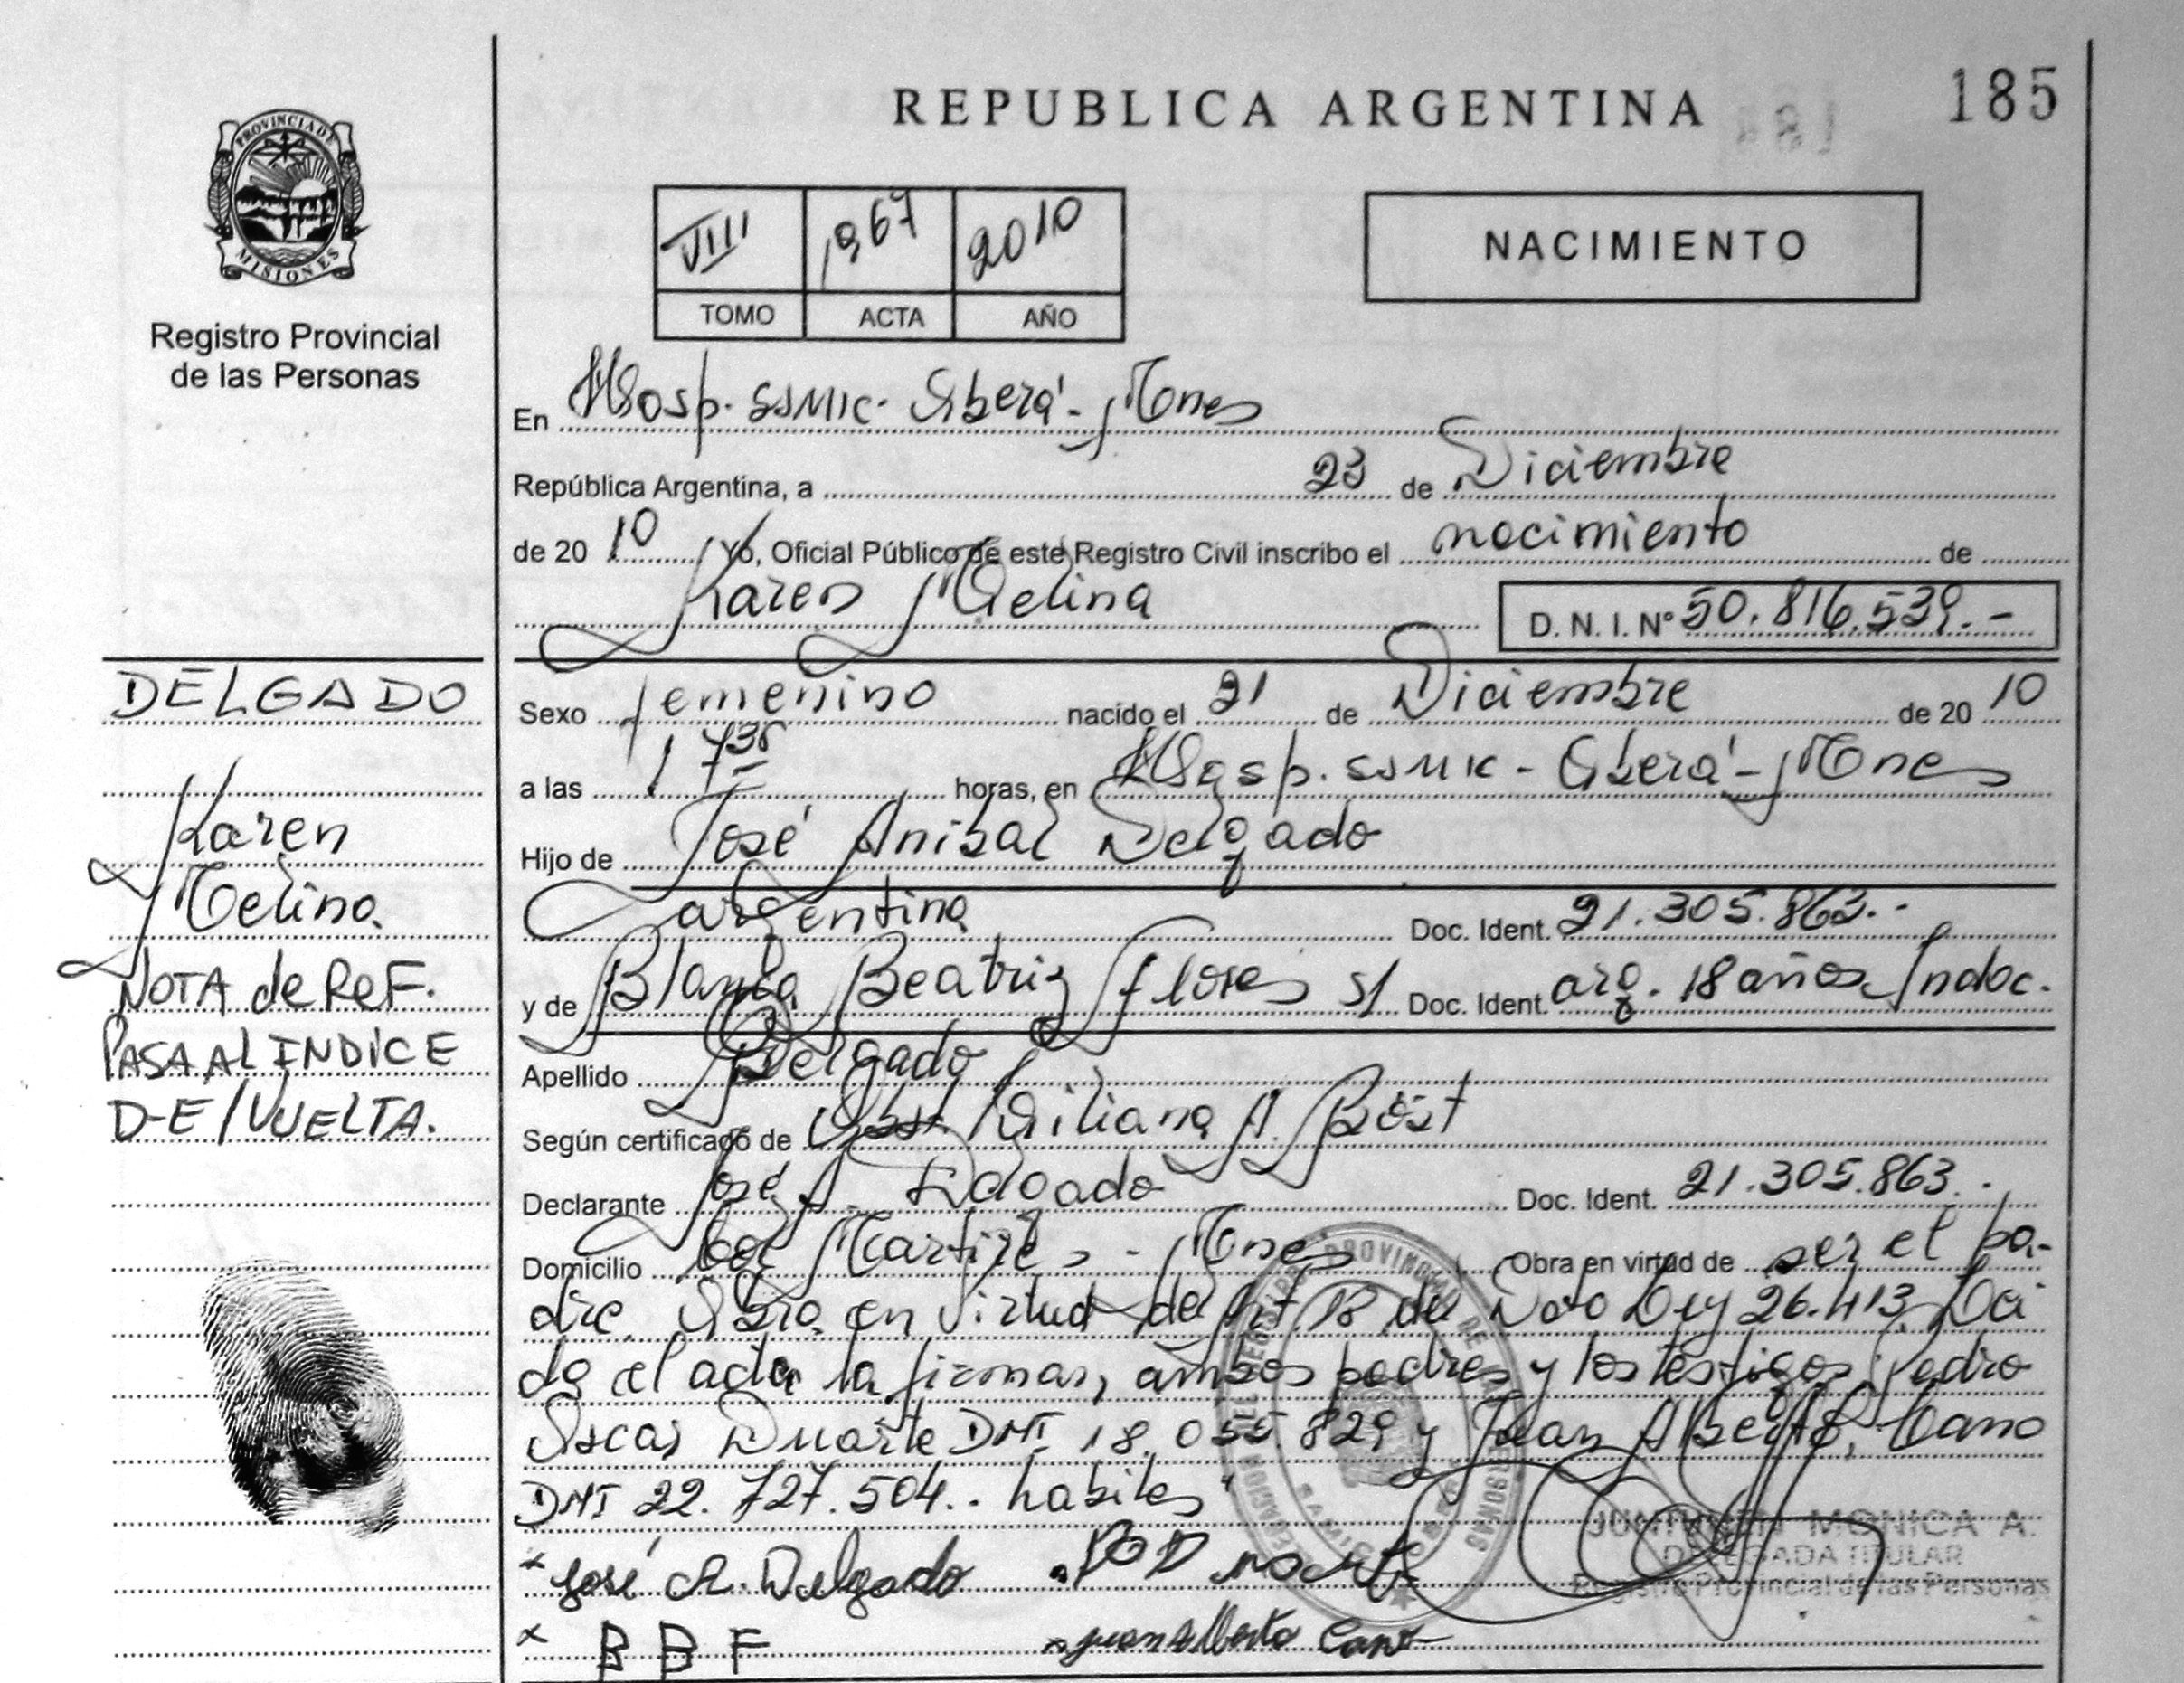 REPUBLICA ARGENTINA
185
PROVINCIA DE
MISIONES
Registro Provincial
de las Personas
VIII 1967 2010
TOMO ACTA AÑO
NACIMIENTO
En Hosp. SSMIC. Oberá - Mnes
República Argentina, a 23 de Diciembre
de 20 10 Yo, Oficial Público de este Registro Civil inscribo el nacimiento de
Karen Melina
D. N. I. Nº 50.816.539.-
DELGADO
Karen
Melina
NOTA de ReF.
PASA AL INDICE
D-E/VUELTA.
Sexo femenino nacido el 21 de Diciembre de 20 10
a las 1735 horas, en Hosp. SSMIC - Oberá - Mnes
Hijo de José Anibal Delgado
argentina Doc. Ident. 21.305.863.-
y de Blanca Beatriz Flores s/ Doc. Ident. arg. 18 años Indoc.
Apellido Delgado
Según certificado de Obst. Liliana A. Böst
Declarante José A. Delgado Doc. Ident. 21.305.863.-
Domicilio Col Martires - Mnes Obra en virtud de ser el pa-
dre. Obra en virtud del Art. 18 de Ley 26.413. Lei
da el acta la firman, ambos padres y los testigos Pedro
Oscar Duarte DNI 18.055.829 y Juan Alberto Cano
DNI 22.727.504.. habiles
x José A. Delgado
x B B F Juan Alberto Cano
MONICA A.
DELEGADA TITULAR
Registro Provincial de las Personas